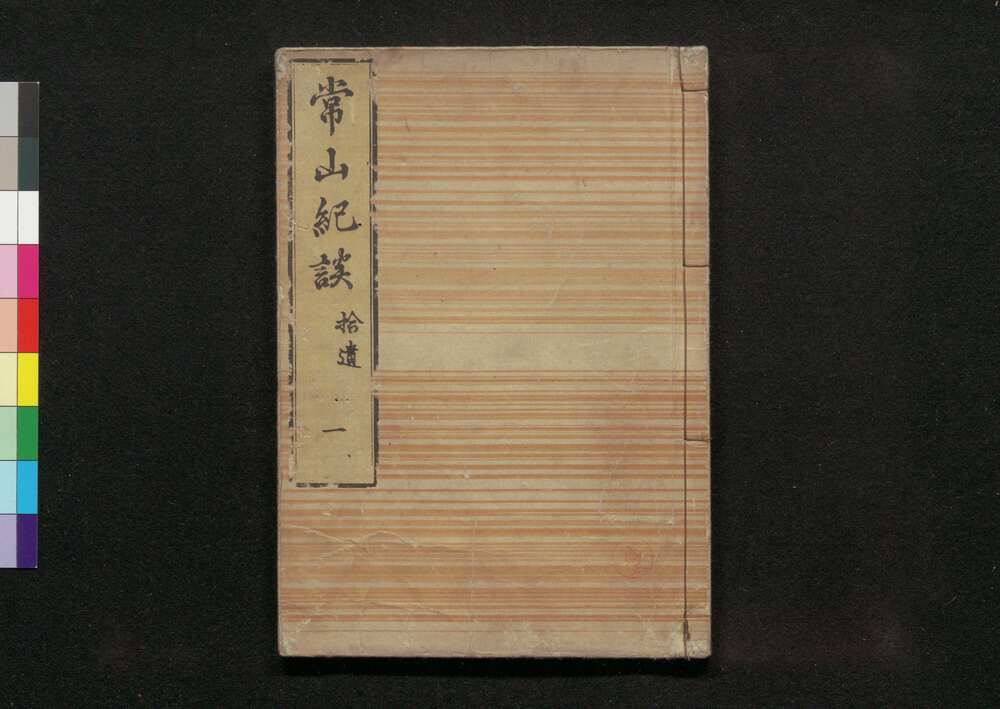 常山紀談
拾遺
一